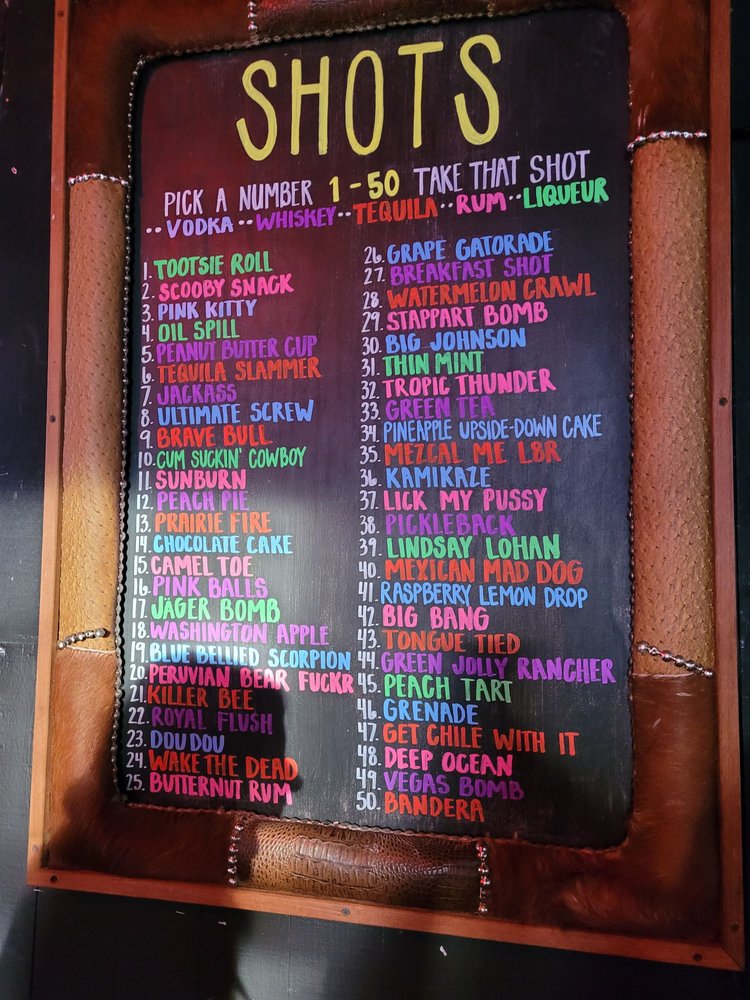 SHOTS
PICK A NUMBER 1-50 TAKE THAT SHOT
··VODKA··WHISKEY··TEQUILA··RUM··LIQUEUR
1. TOOTSIE ROLL
2. SCOOBY SNACK
3. PINK KITTY
4. OIL SPILL
5. PEANUT BUTTER CUP
6. TEQUILA SLAMMER
7. JACKASS
8. ULTIMATE SCREW
9. BRAVE BULL
10. CUM SUCKIN' COWBOY
11. SUNBURN
12. PEACH PIE
13. PRAIRIE FIRE
14. CHOCOLATE CAKE
15. CAMEL TOE
16. PINK BALLS
17. JÄGER BOMB
18. WASHINGTON APPLE
19. BLUE BELLIED SCORPION
20. PERUVIAN BEAR FUCKR
21. KILLER BEE
22. ROYAL FLUSH
23. DOU DOU
24. WAKE THE DEAD
25. BUTTERNUT RUM
26. GRAPE GATORADE
27. BREAKFAST SHOT
28. WATERMELON CRAWL
29. STAPPART BOMB
30. BIG JOHNSON
31. THIN MINT
32. TROPIC THUNDER
33. GREEN TEA
34. PINEAPPLE UPSIDE-DOWN CAKE
35. MEZCAL ME L8R
36. KAMIKAZE
37. LICK MY PUSSY
38. PICKLEBACK
39. LINDSAY LOHAN
40. MEXICAN MAD DOG
41. RASPBERRY LEMON DROP
42. BIG BANG
43. TONGUE TIED
44. GREEN JOLLY RANCHER
45. PEACH TART
46. GRENADE
47. GET CHILE WITH IT
48. DEEP OCEAN
49. VEGAS BOMB
50. BANDERA